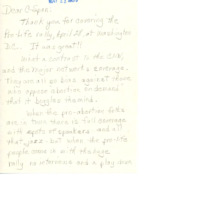 Dear C-Span,
Thank you for covering the
Pro-Life rally, April 28, at Washington
D.C. It was great!!
What a contrast to the CNN,
and the major networks coverage.
They are all so bias against those
who oppose abortion on demand
that it boggles the mind.
When the pro-abortion folks
are in town there is full coverage
with spots of speakers and all
that, but when the pro-life
people come in with the huge
rally no interviews and a play down